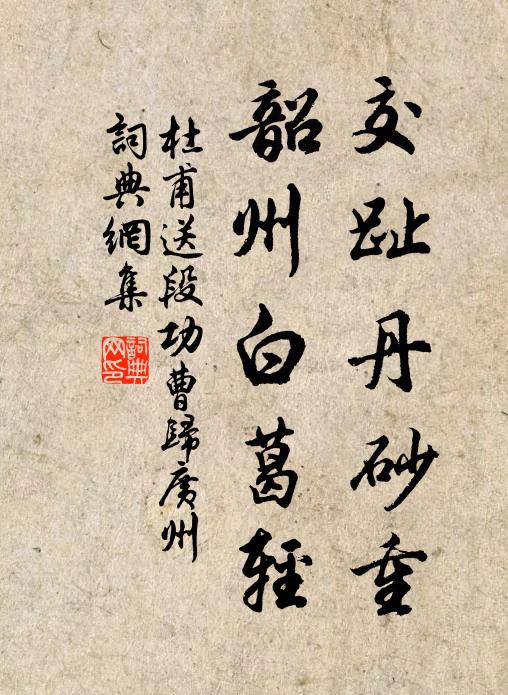 交趾丹砂重
韶州白葛輕
杜甫送段功曹歸廣州
詞典網集
詞典网印